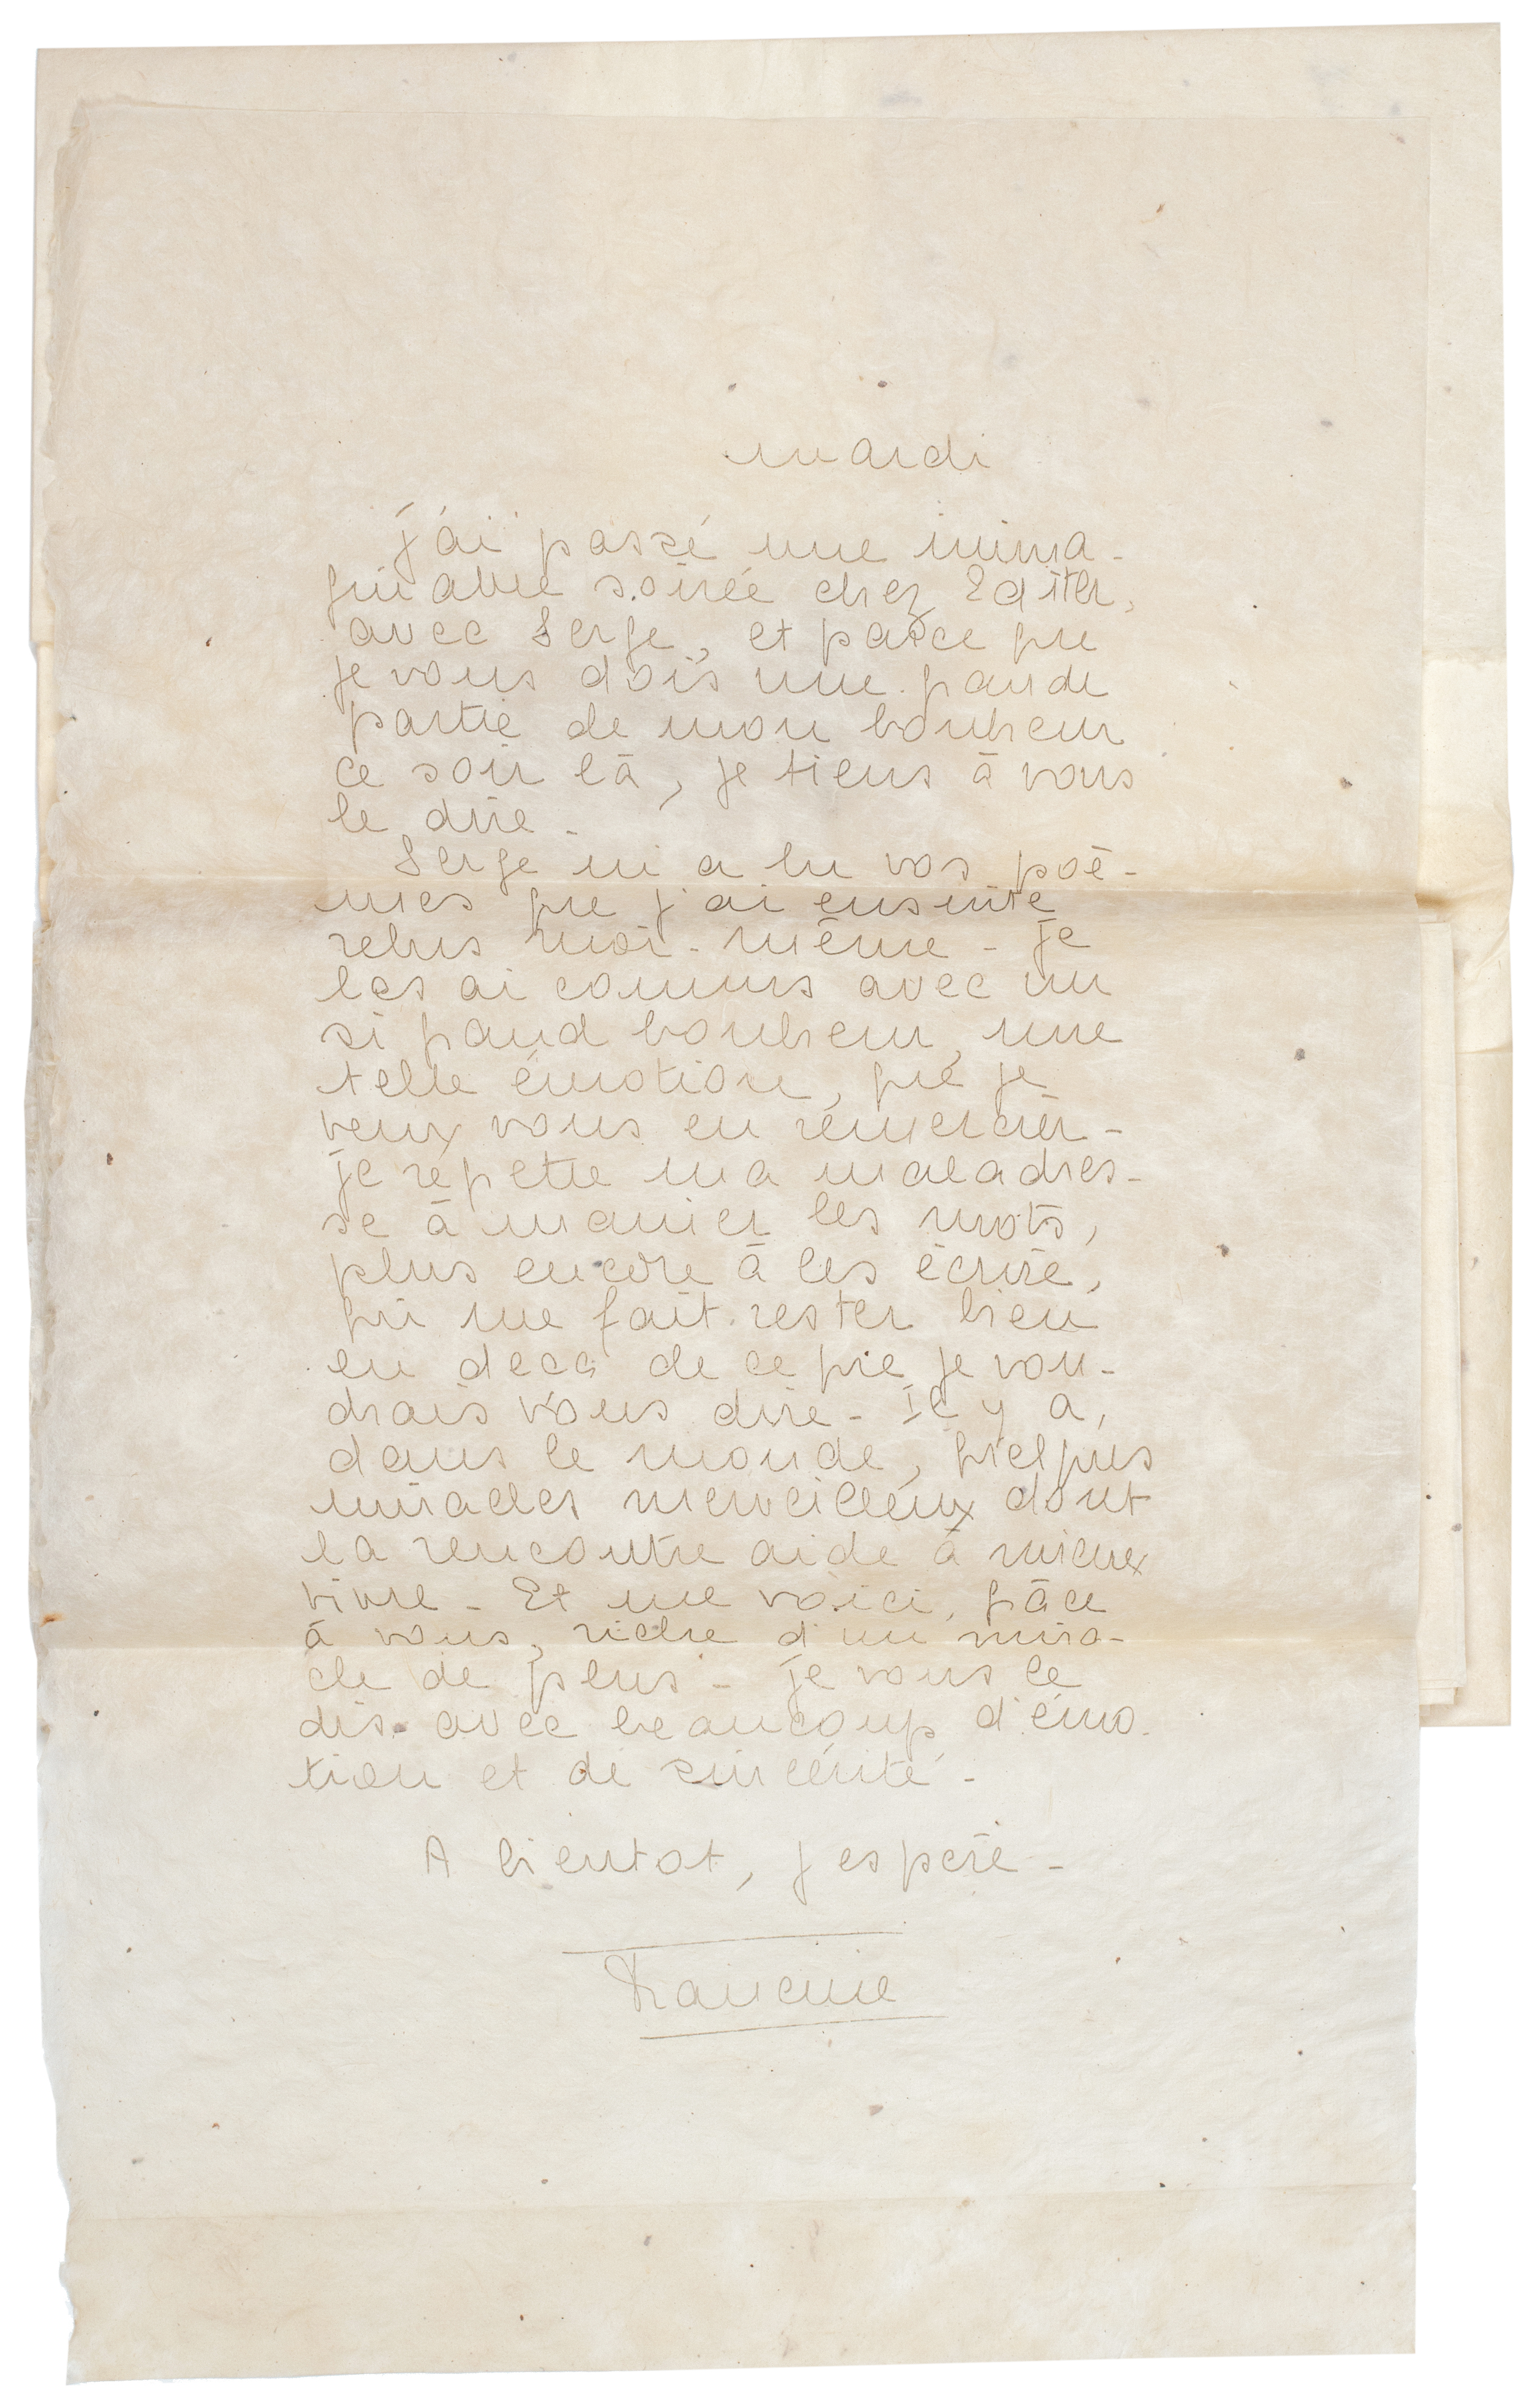 mardi
j'ai passé une inima-
ginable soirée chez Edith,
avec Serge, et parce que
je vous dois une grande
partie de mon bonheur
ce soir là, je tiens à vous
le dire -
Serge m'a lu vos poè-
mes que j'ai ensuite
relus moi-même - je
les ai connus avec un
si grand bonheur, une
telle émotion, que je
veux vous en remercier -
je répette ma maladres-
se à manier les mots,
plus encore à les écrire,
qui me fait rester bien
en deca de ce que je vou-
drais vous dire - Il y a,
dans le monde, quelques
miracles merveilleux dont
la rencontre aide à mieux
vivre - Et me voici, grâce
à vous, riche d'un mira-
cle de plus - je vous le
dis avec beaucoup d'émo-
tion et de sincérité -
A bientot, j'espère -
Francine